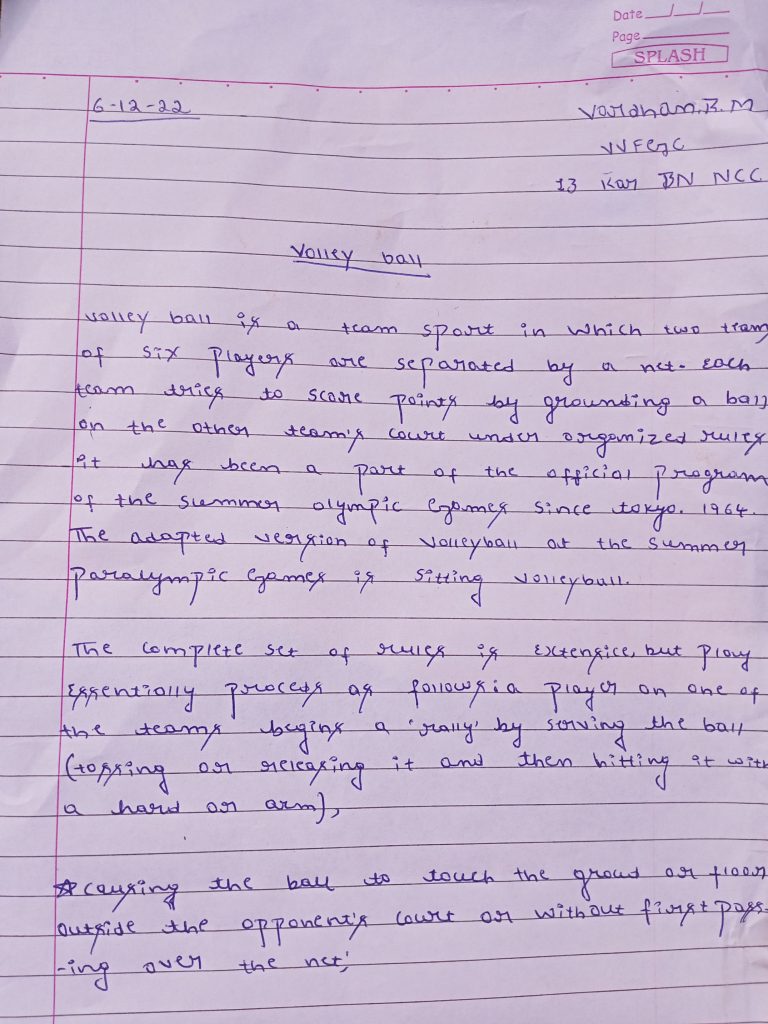 Date
Page
SPLASH
6-12-22
Vardhan.B.M
VVFGC
13 Kar BN NCC
Volley ball
volley ball is a team sport in which two team
of six players are separated by a net. Each
team tries to score points by grounding a ball
on the other team's court under organized rules
it has been a part of the official program
of the summer olympic games since tokyo. 1964.
The adapted version of volleyball at the summer
paralympic games is sitting volleyball.
The complete set of rules is extensice, but play
essentially proceeds as follows: a player on one of
the teams begins a 'rally' by serving the ball
(tossing or releasing it and then hitting it with
a hard or arm),
☆causing the ball to touch the groud or floor
outside the opponent's court or without first pass-
-ing over the net;